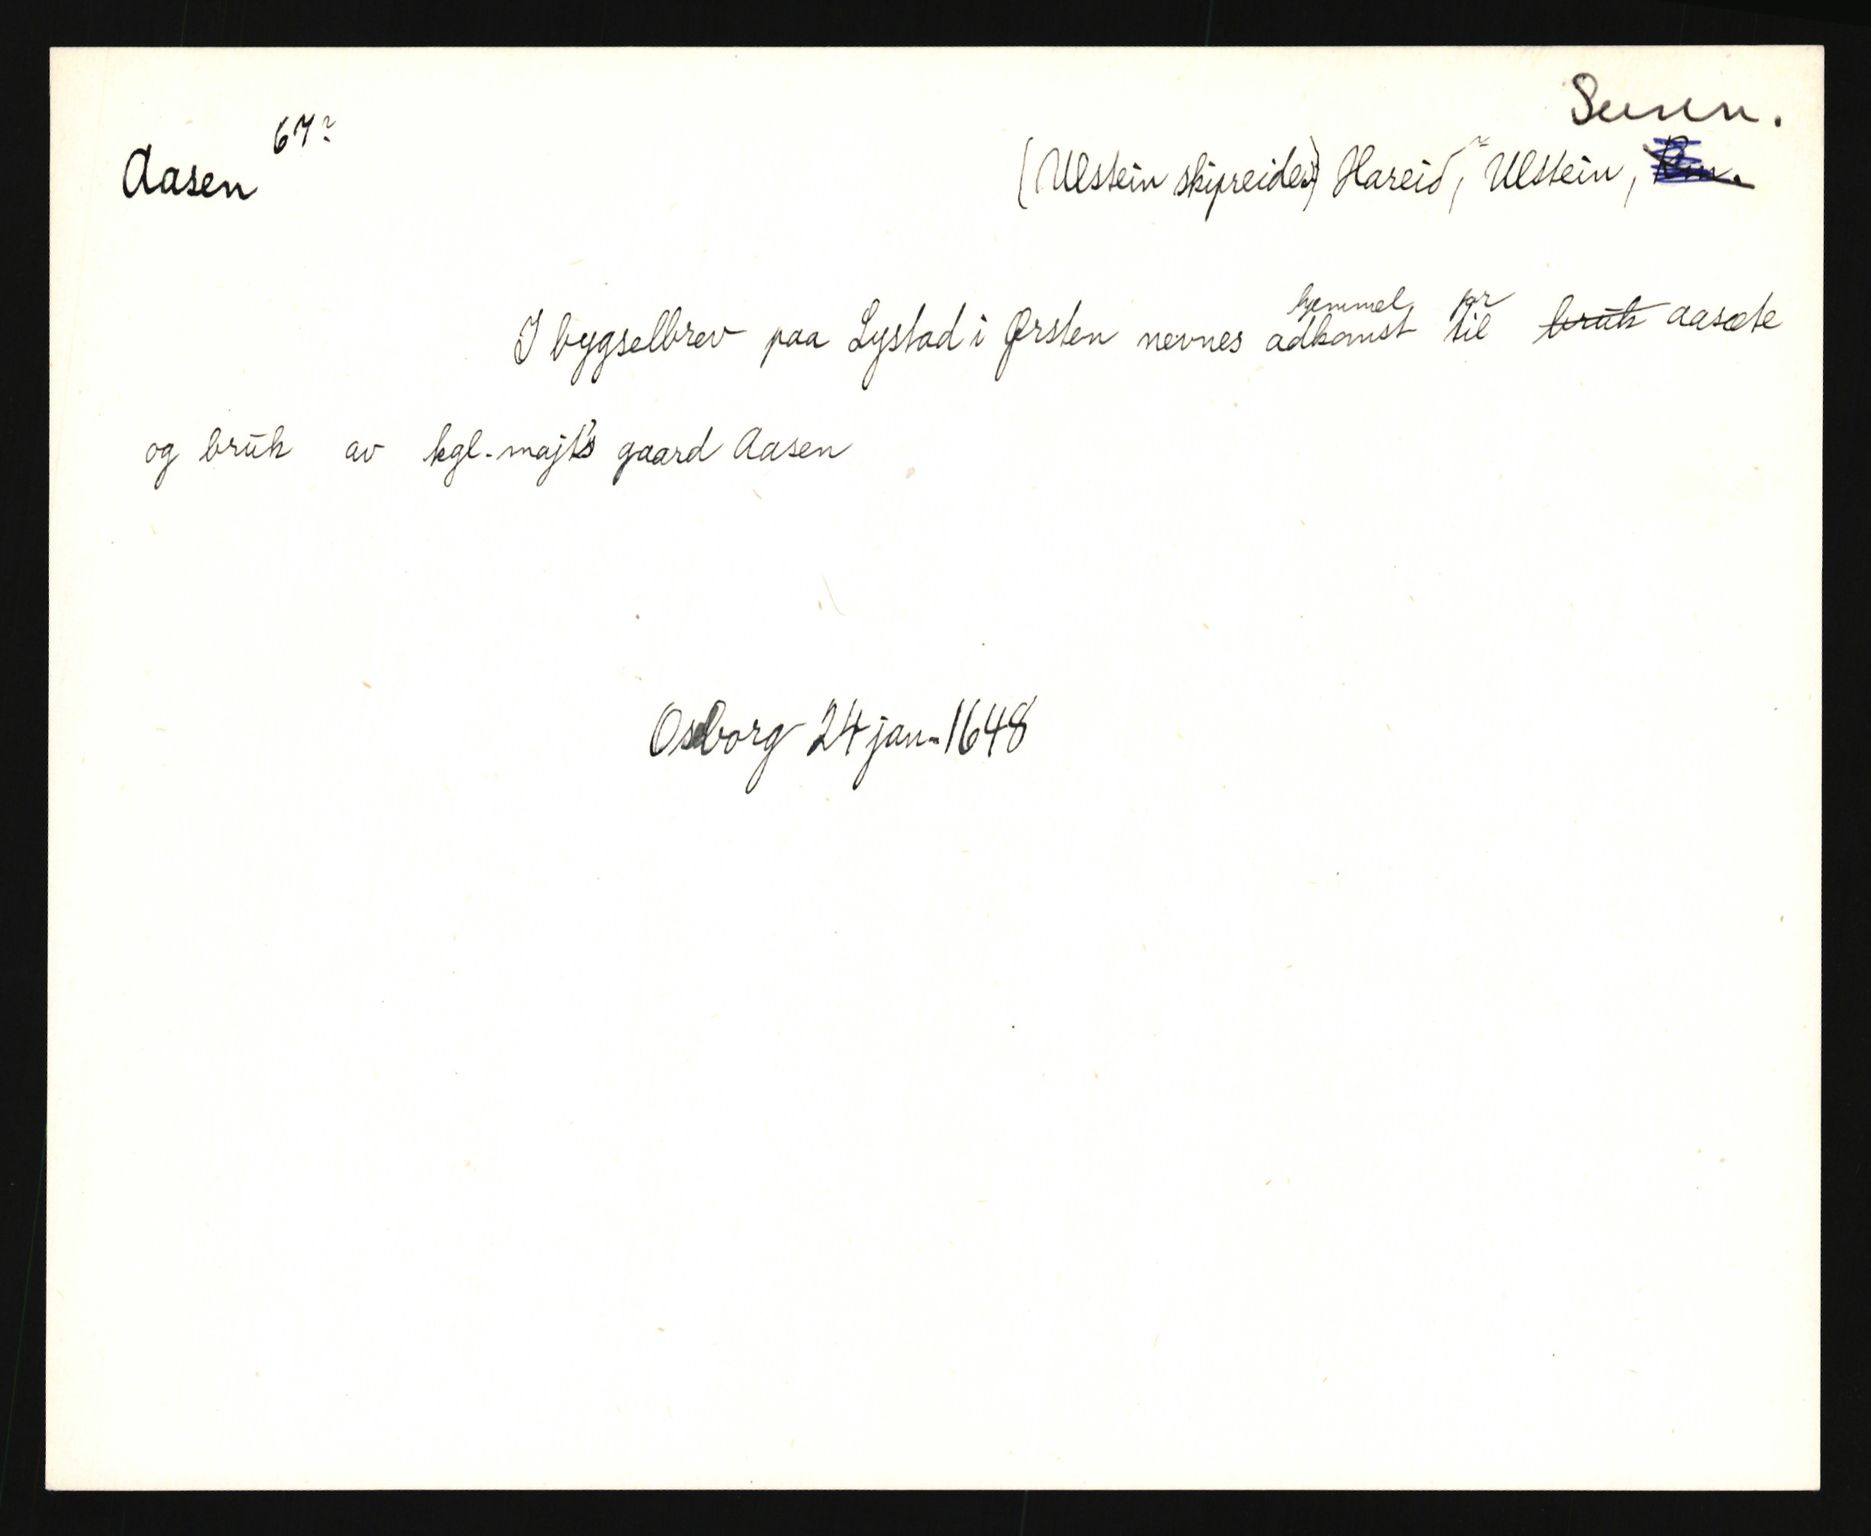 Sunn.
Aasen 67? (Ulstein skipreide) Hareid, Ulstein, Rm.
hemmel pr
I bygselbrev paa Lystad i Ørsten nevnes adkomst til bruk aasæte
og bruk av kgl. majt's gaard Aasen
Osborg 24 jan. 1648